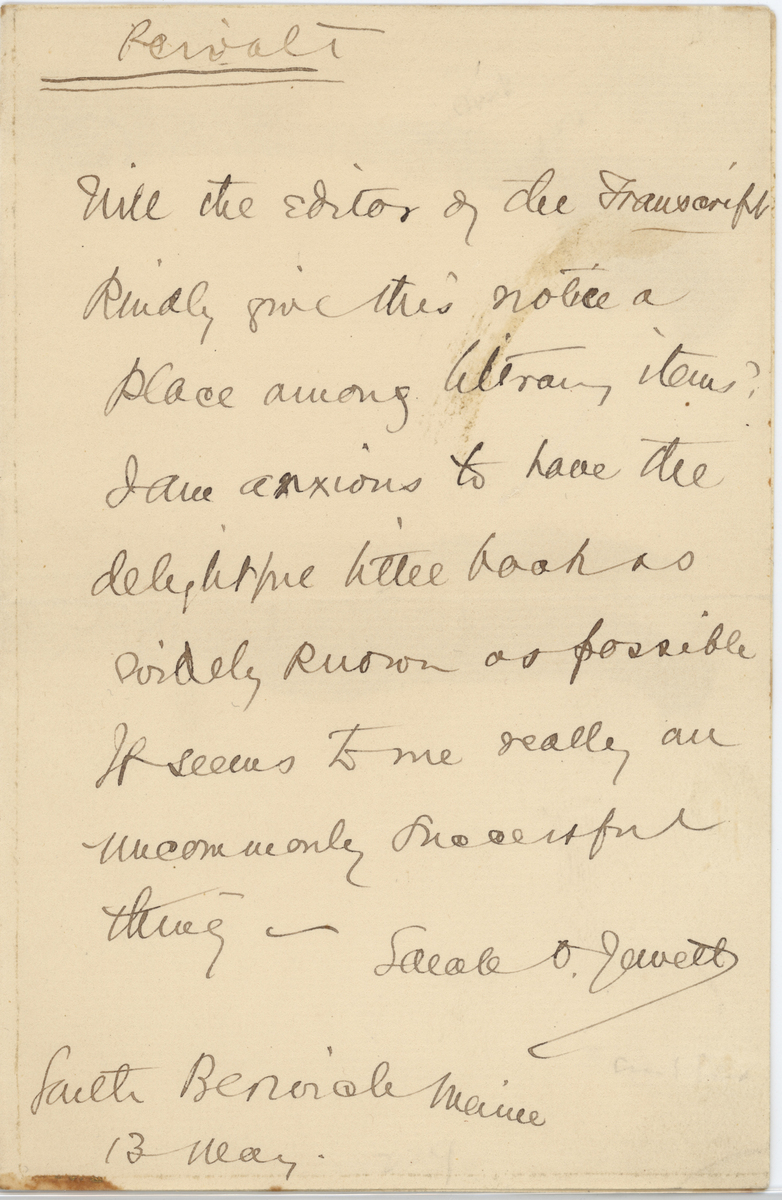 Private
Will the editor of the Transcript
kindly give this notice a
place among literary items?
I am anxious to have the
delightful little book as
widely known as possible
It seems to me really an
uncommonly successful
thing —
Sarah O. Jewett
South Berwick Maine
13 May.